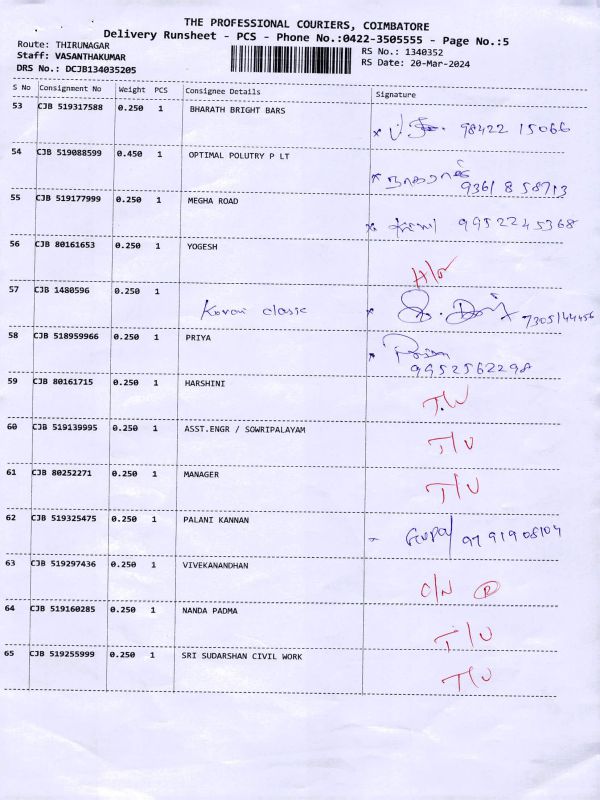 THE PROFESSIONAL COURIERS, COIMBATORE
Delivery Runsheet - PCS - Phone No.:0422-3505555 - Page No.:5
Route: THIRUNAGAR
RS No.: 1340352
Staff: VASANTHAKUMAR
RS Date: 20-Mar-2024
DRS No.: DCJB134035205
S No Consignment No Weight PCS Consignee Details Signature
53 CJB 519317588 0.250 1 BHARATH BRIGHT BARS
98422 15066
54 CJB 519088599 0.450 1 OPTIMAL POLUTRY P LT
நாகராஜ்
9361858713
55 CJB 519177999 0.250 1 MEGHA ROAD
9952245368
56 CJB 80161653 0.250 1 YOGESH
57 CJB 1480596 0.250 1
Kovai classic
7305144456
58 CJB 518959966 0.250 1 PRIYA
9952562298
59 CJB 80161715 0.250 1 HARSHINI
T/U
60 CJB 519139995 0.250 1 ASST.ENGR / SOWRIPALAYAM
T/U
61 CJB 80252271 0.250 1 MANAGER
T/U
62 CJB 519325475 0.250 1 PALANI KANNAN
9791908104
63 CJB 519297436 0.250 1 VIVEKANANDHAN
C/N R
64 CJB 519160285 0.250 1 NANDA PADMA
T/U
65 CJB 519255999 0.250 1 SRI SUDARSHAN CIVIL WORK
T/U